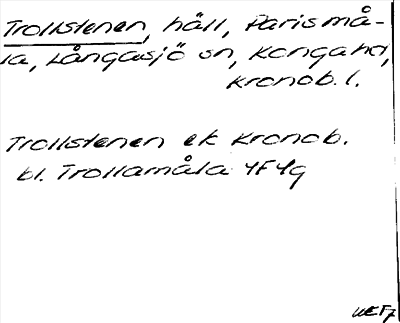 Trollstenen, häll, Parismå-
la, Långasjö sn, Konga hd,
Kronob. l.
Trollstenen ek Kronob.
bl. Trollamåla 4F4g